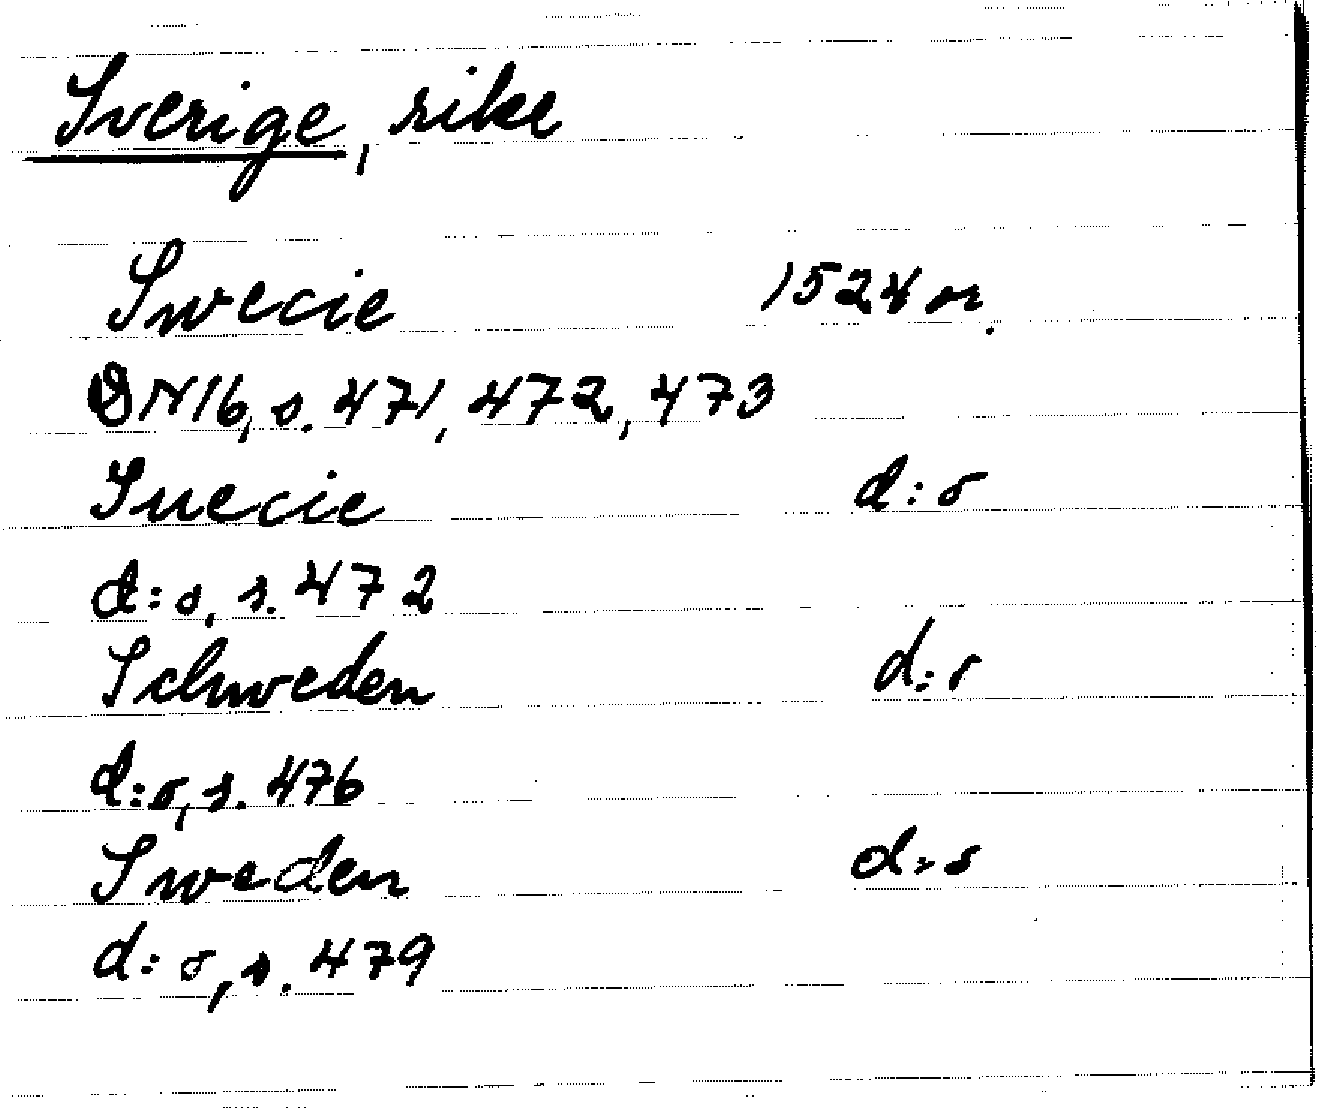 Sverige, rike
Swecie 1524 or.
DN16, s. 471, 472, 473
Suecie d:o
d:o, s. 472
Schweden d:o
d:o, s. 476
Sweden d:o
d:o, s. 479